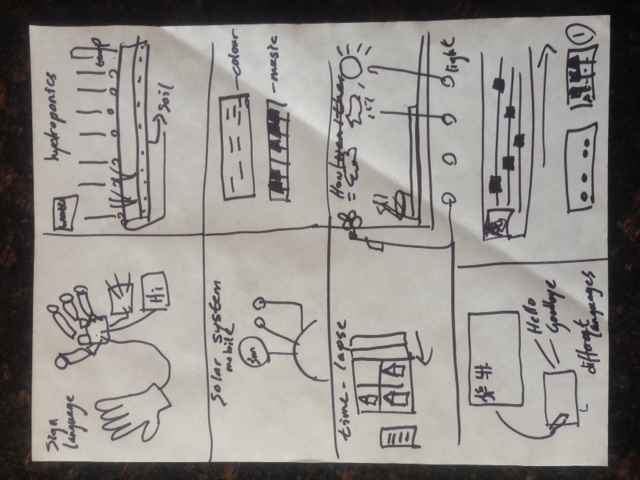 Sign
language
Hi
hydroponics
water
temp
soil
Solar system
mobile
Sun
colour
music
time-lapse
light
Hello
Goodbye
different
languages
1